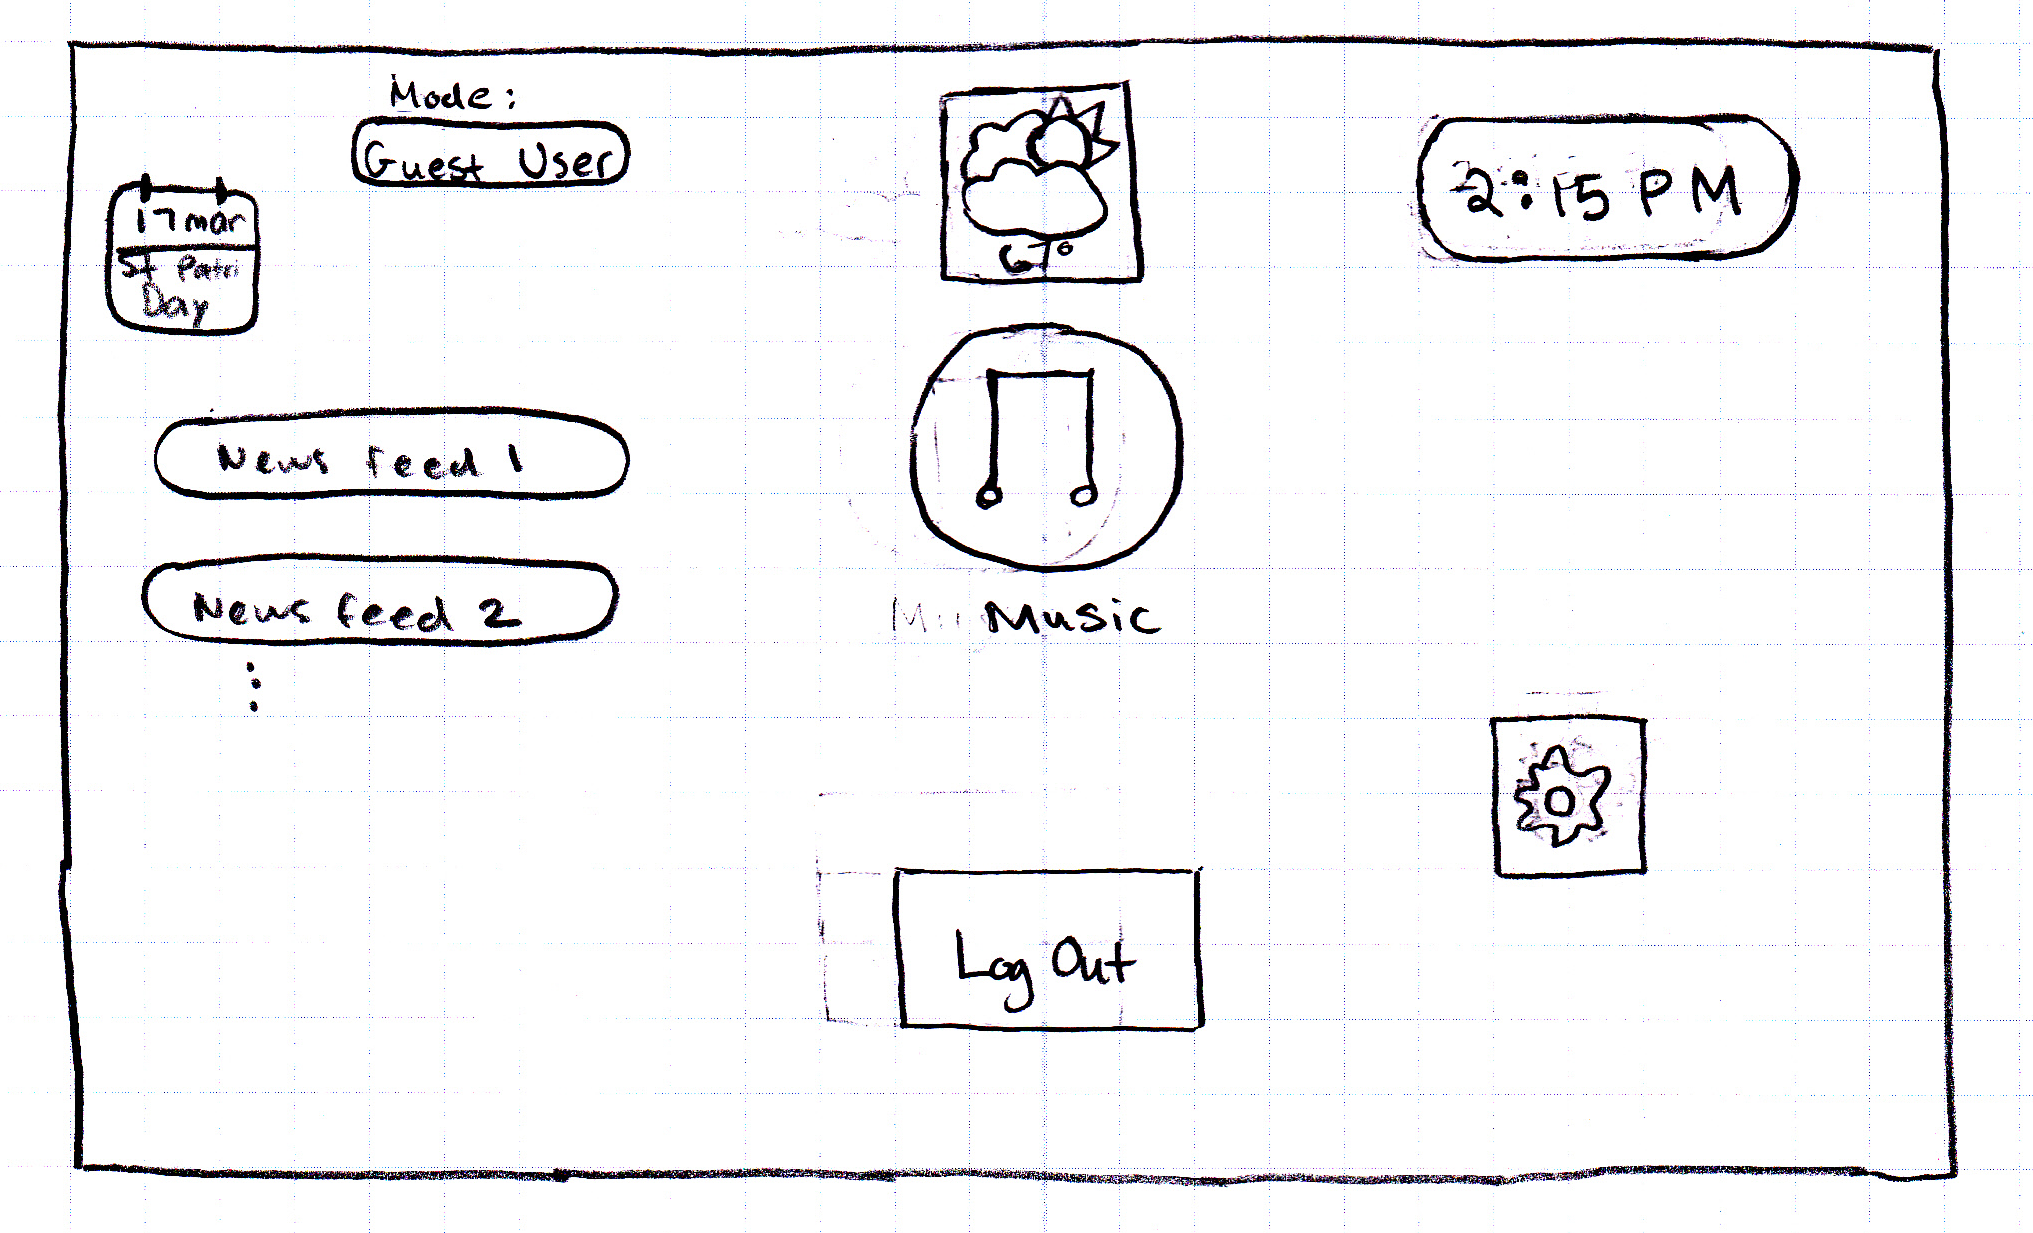 Mode:
Guest User
17 mar
St Patri
Day
67°
2:15 PM
News feed 1
News feed 2
Music
Log Out